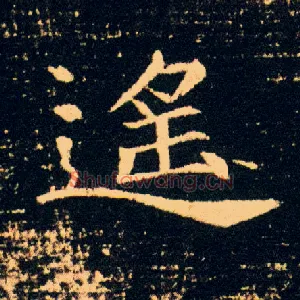 遙
Shufawang.CN